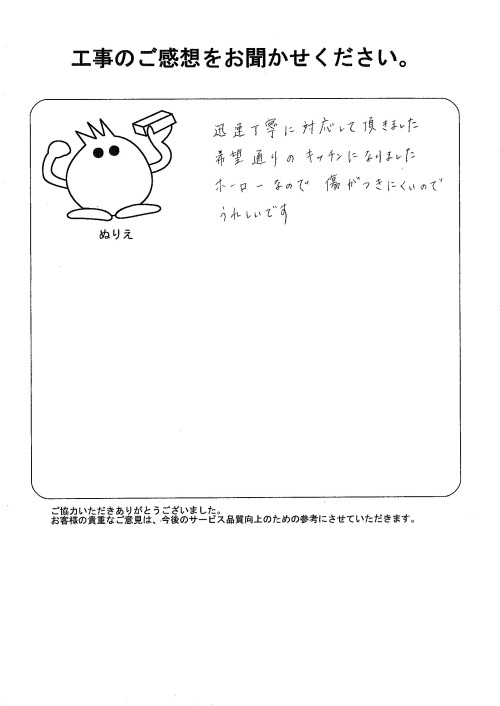 工事のご感想をお聞かせください。
迅速丁寧に対応して頂きました
希望通りのキッチンになりました
ホーローなので 傷がつきにくいので
うれしいです
ぬりえ
ご協力いただきありがとうございました。
お客様の貴重なご意見は、今後のサービス品質向上のための参考にさせていただきます。